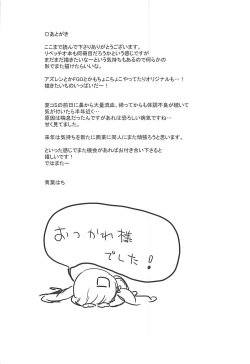 □あとがき
ここまで読んで下さりありがとうございます。
リベッチオ本も何冊目だろうかという感じですが
まだまだ描きたいなーという気持ちもあるので何らかの
形でまた描けたらいいな。
アズレンとかFGOとかもちょこちょこやってたりオリジナルも…!
描きたいものいっぱいだー!
夏コミの前日に鼻から大量流血、帰ってからも体調不良が続いて
気が付いたら半年近く…
原因は喘息だったんですがあれは恐ろしい病気ですね…
甘く見てました。
来年は気持ちを新たに商業に同人にまた頑張ろうと思います。
といった感じでまた機会があればお付き合い下さると
嬉しいです!
ではまたー
青葉はち
おつかれ様
でした!